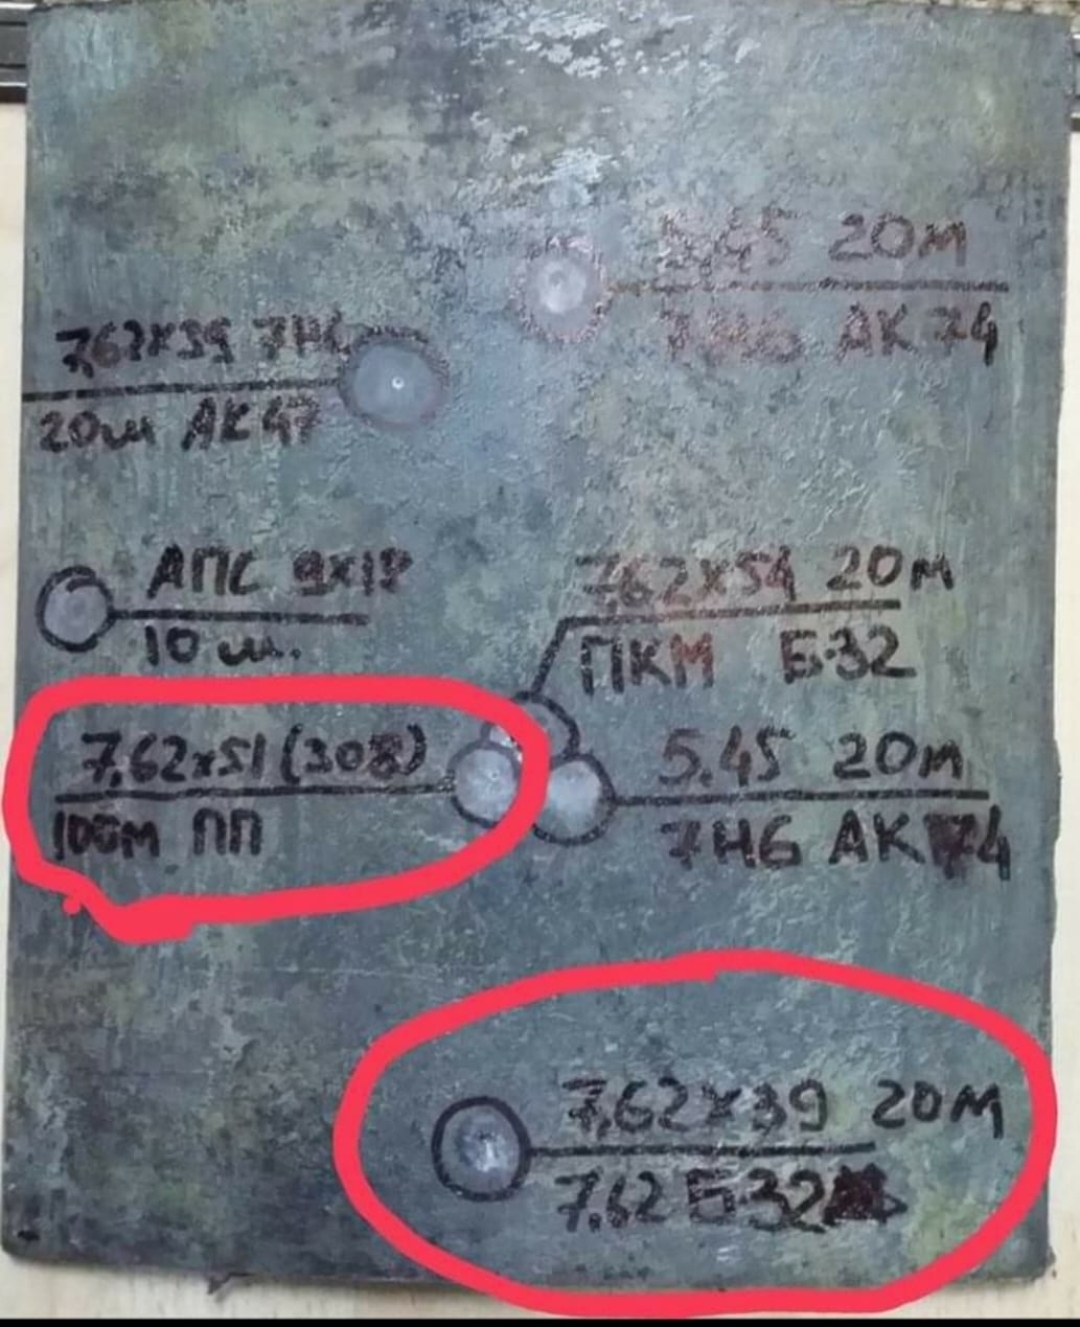 5,45 20м
7Н6 АК 74
7,62х39 7Н6
20м АК47
АПС 9х18
10 м.
7,62х54 20м
ПКМ Б-32
7,62х51 (308)
100м ПП
5.45 20м
7Н6 АК 74
7,62х39 20м
7,62 Б-32